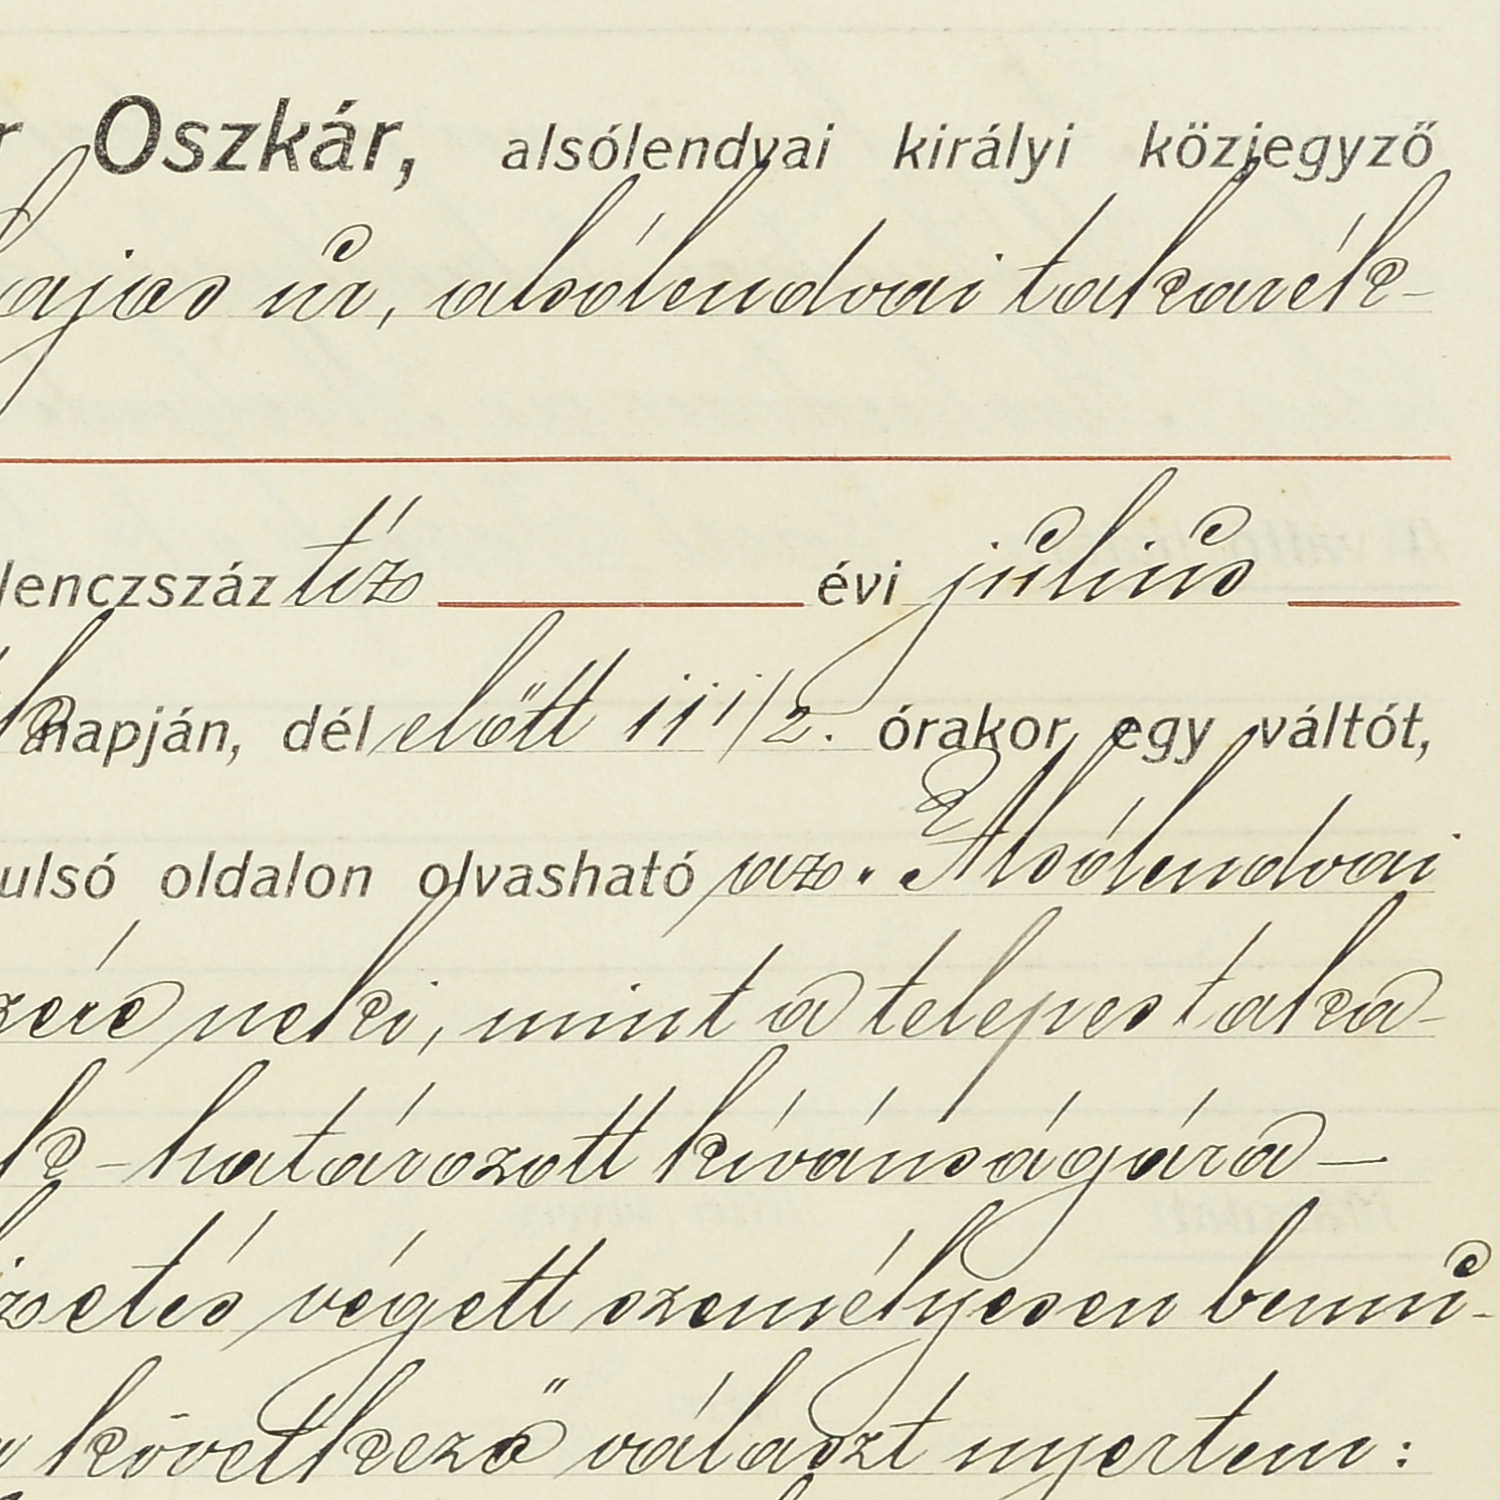 r Oszkár, alsólendvai királyi közjegyző
Lajos úr, alsólendvai takarék-
lenczszáz tíz évi július
napján, dél előtt 11 1/2. órakor egy váltót,
ulsó oldalon olvasható az. Alsólendvai
zére neki, mint a telepes taka-
k - határozott kívánságára —
izetés végett személyesen bemu-
a következő választ nyertem: